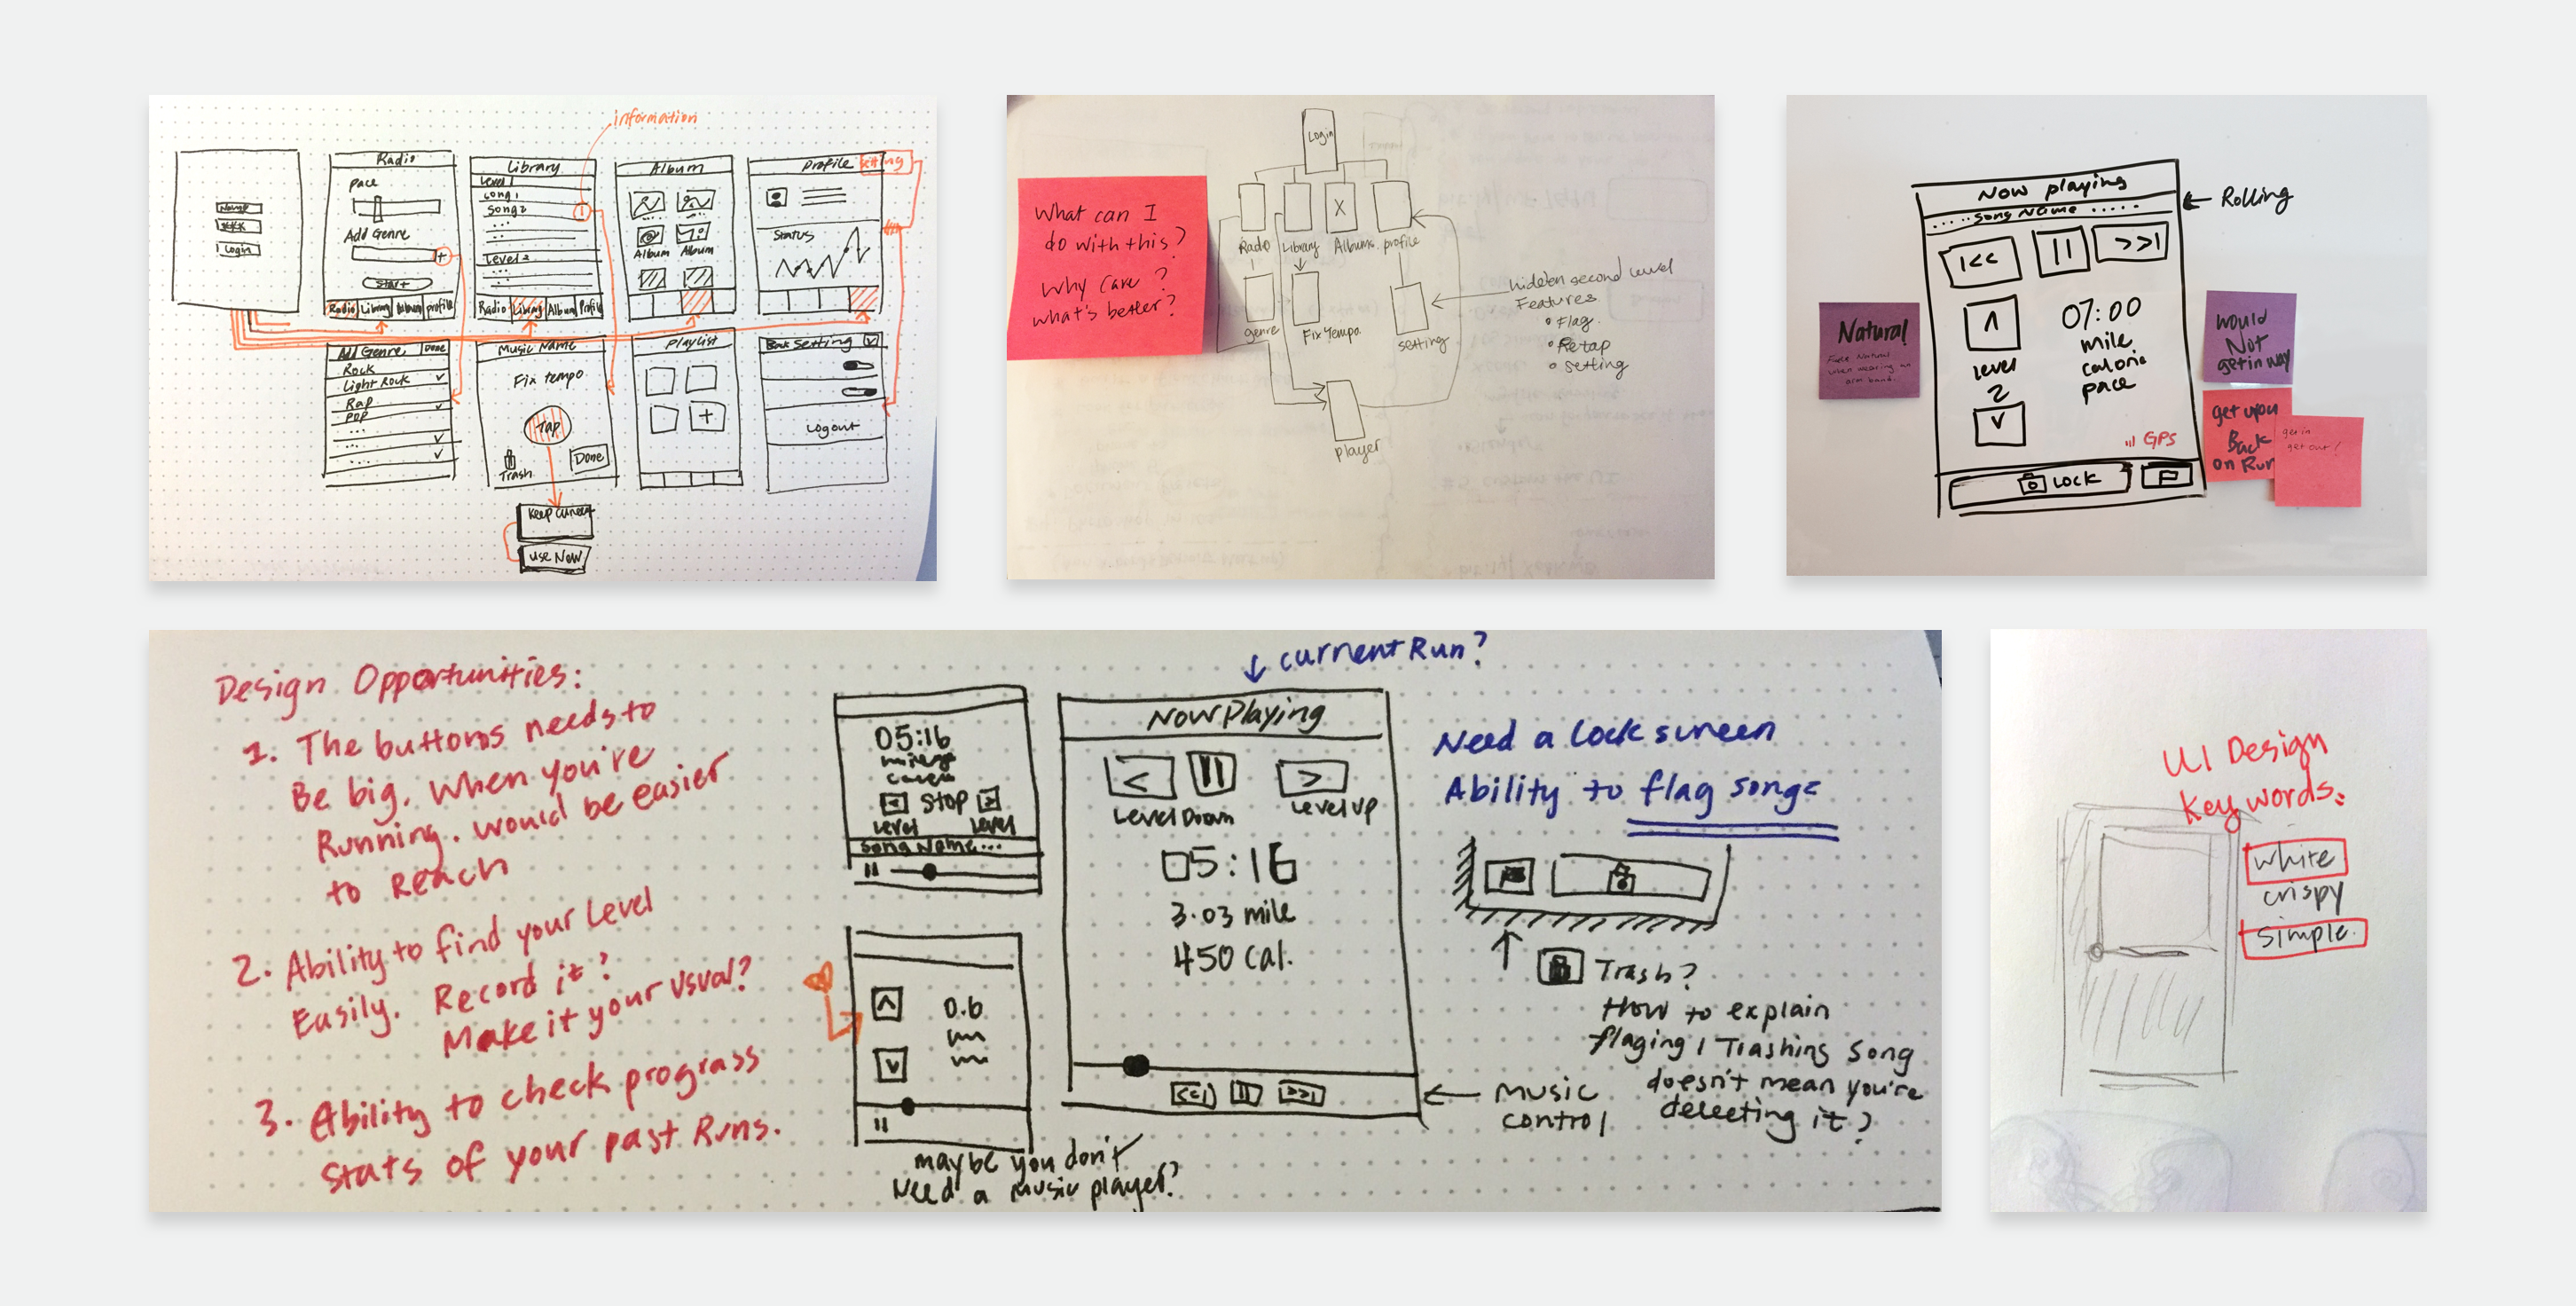 information
Radio
Pace
Add Genre
+
Start
Radio Library Album Profile
Library
Level 1
song 1
song 2
...
...
Level 2
...
Radio Library Album Profile
Album
Album Album
Profile
setting
Status
Login
Add Genre Done
Rock
Light Rock
Rap
POP
...
...
...
Music Name
Fix tempo
Tap
Trash
Done
Keep Current
use Now
Playlist
+
Back Setting
Logout
What can I
do with this?
Why care?
what's better?
Login
X
Radio Library Albums profile
genre
Fix Tempo.
setting
player
hidden second level
Features.
Flag.
Retap
Setting
Now playing
.....song Name.....
Rolling
|<< || >>|
^
level
2
v
07:00
mile
calorie
pace
GPS
Lock
Natural
Feels Natural
when wearing an
arm band.
would
Not
get in way
get upon
Back
on Run
get in
get out!
Design Opportunities:
1. The buttons needs to
Be big. When you're
Running. would be easier
to Reach
2. Ability to find your Level
Easily. Record it?
Make it your usual?
3. Ability to check prograss
Stats of your past Runs.
05:16
< Stop >
Level Level
Song Name...
||
^
v
0.6
||
maybe you don't
Need a Music player?
current Run?
Now Playing
< || >
Level Down Level up
05:16
3.03 mile
450 Cal.
<<| || >>|
Music
control
Need a Lock screen
Ability to flag songs
Trash?
How to explain
flaging / Trashing Song
doesn't mean you're
deleeting it?
UI Design
Key words:
white
crispy
simple.